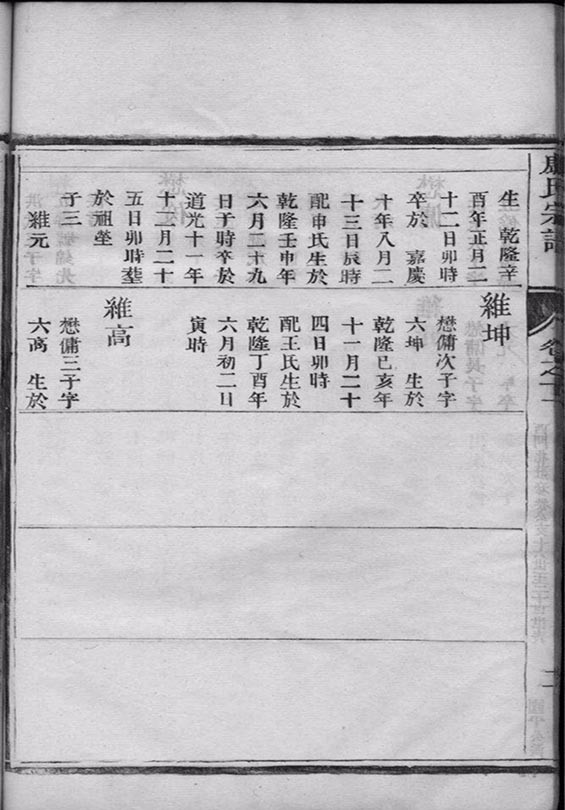 氏宗譜
卷之十二
生 乾隆辛
酉年正月二
十二日卯時
卒於 嘉慶
十年八月二
十三日辰時
配申氏生於
乾隆壬申年
六月二十九
日子時卒於
道光十一年
十二月二十
五日卯時塟
於祖塋
子三
維元
維坤
懋傭次子字
六坤 生於
乾隆己亥年
十一月二十
四日卯時
配王氏生於
乾隆丁酉年
六月初二日
寅時
維高
懋傭三子字
六高 生於